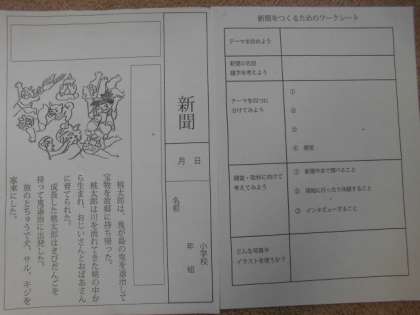 新聞
月 日
小学校
年 組
名前
桃太郎は、鬼が島の鬼を退治して
宝物を故郷に持ち帰った。
桃太郎は川を流れてきた桃の中か
ら生まれ、おじいさんとおばあさん
に育てられた。
成長した桃太郎はきびだんごを
持って鬼退治に出発した。
旅のとちゅうで犬、サル、キジを
家来にした。
新聞をつくるためのワークシート
テーマを決めよう
新聞の名前
題字を考えよう
テーマを四つに
分けてみよう
①
②
③
④
調査・取材に向けて
考えてみよう
① 新聞や本で調べること
② 現地に行ったり体験すること
③ インタビューすること
どんな写真や
イラストを使うか？